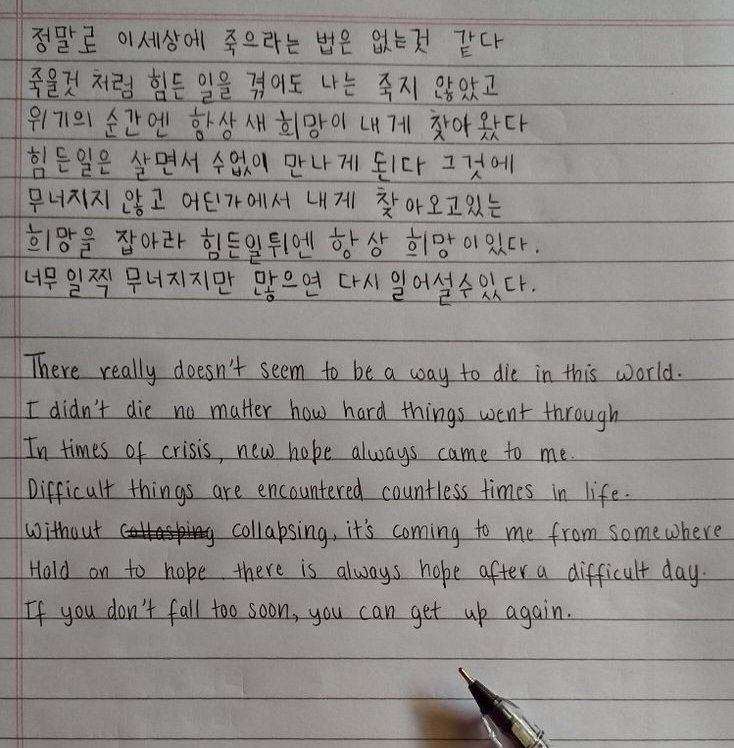 정말로 이세상에 죽으라는 법은 없는것 같다
죽을것 처럼 힘든 일을 겪어도 나는 죽지 않았고
위기의 순간엔 항상 새 희망이 내게 찾아 왔다
힘든일은 살면서 수없이 만나게 된다 그것에
무너지지 않고 어딘가에서 내게 찾아오고있는
희망을 잡아라 힘든일뒤엔 항상 희망이있다.
너무 일찍 무너지지만 많으면 다시 일어설수있다.
There really doesn't seem to be a way to die in this world.
I didn't die no matter how hard things went through
In times of crisis, new hope always came to me.
Difficult things are encountered countless times in life.
Without collapsing, it's coming to me from somewhere
Hold on to hope. there is always hope after a difficult day.
If you don't fall too soon, you can get up again.